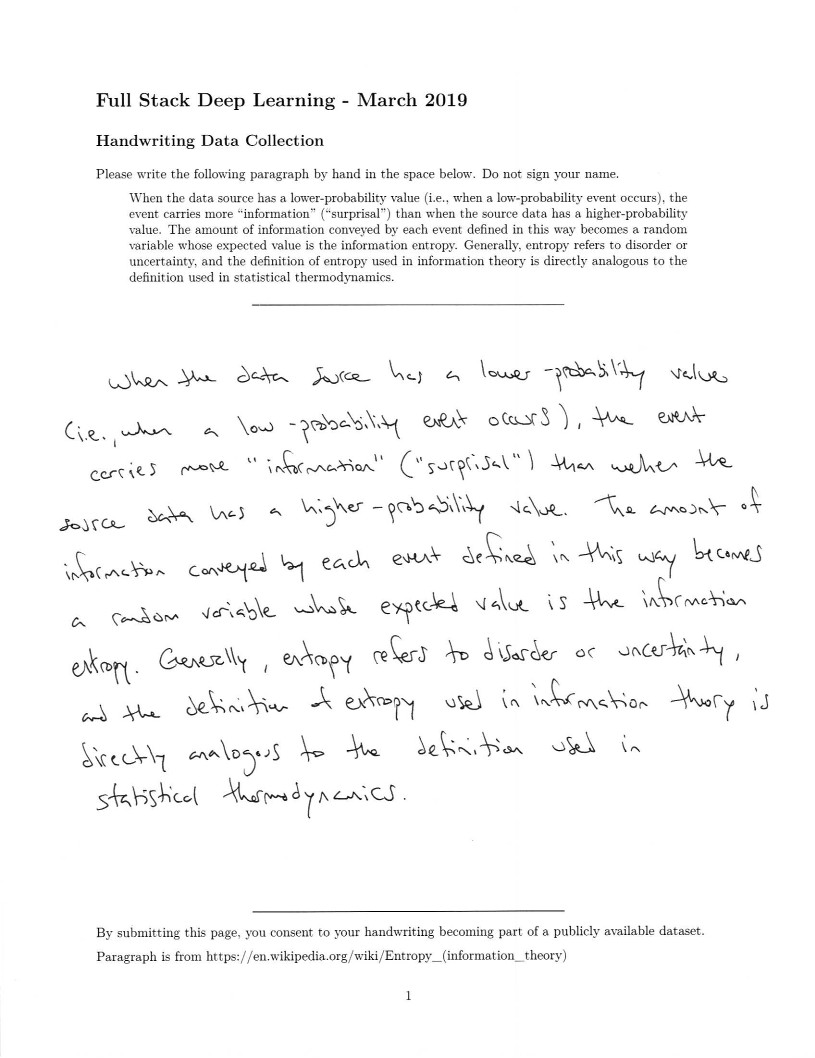 Full Stack Deep Learning - March 2019
Handwriting Data Collection
Please write the following paragraph by hand in the space below. Do not sign your name.
When the data source has a lower-probability value (i.e., when a low-probability event occurs), the
event carries more “information” (“surprisal”) than when the source data has a higher-probability
value. The amount of information conveyed by each event defined in this way becomes a random
variable whose expected value is the information entropy. Generally, entropy refers to disorder or
uncertainty, and the definition of entropy used in information theory is directly analogous to the
definition used in statistical thermodynamics.
When the data source has a lower-probability value
(i.e., when a low-probability event occurs), the event
carries more "information" ("surprisal") than wehen the
source data has a higher-probability value. The amount of
information conveyed by each event defined in this way becomes
a random variable whose expected value is the information
entropy. Generally, entropy refers to disorder or uncertainty,
and the definition of entropy used in information theory is
directly analogous to the definition used in
statistical thermodynamics.
By submitting this page, you consent to your handwriting becoming part of a publicly available dataset.
Paragraph is from https://en.wikipedia.org/wiki/Entropy_(information_theory)
1